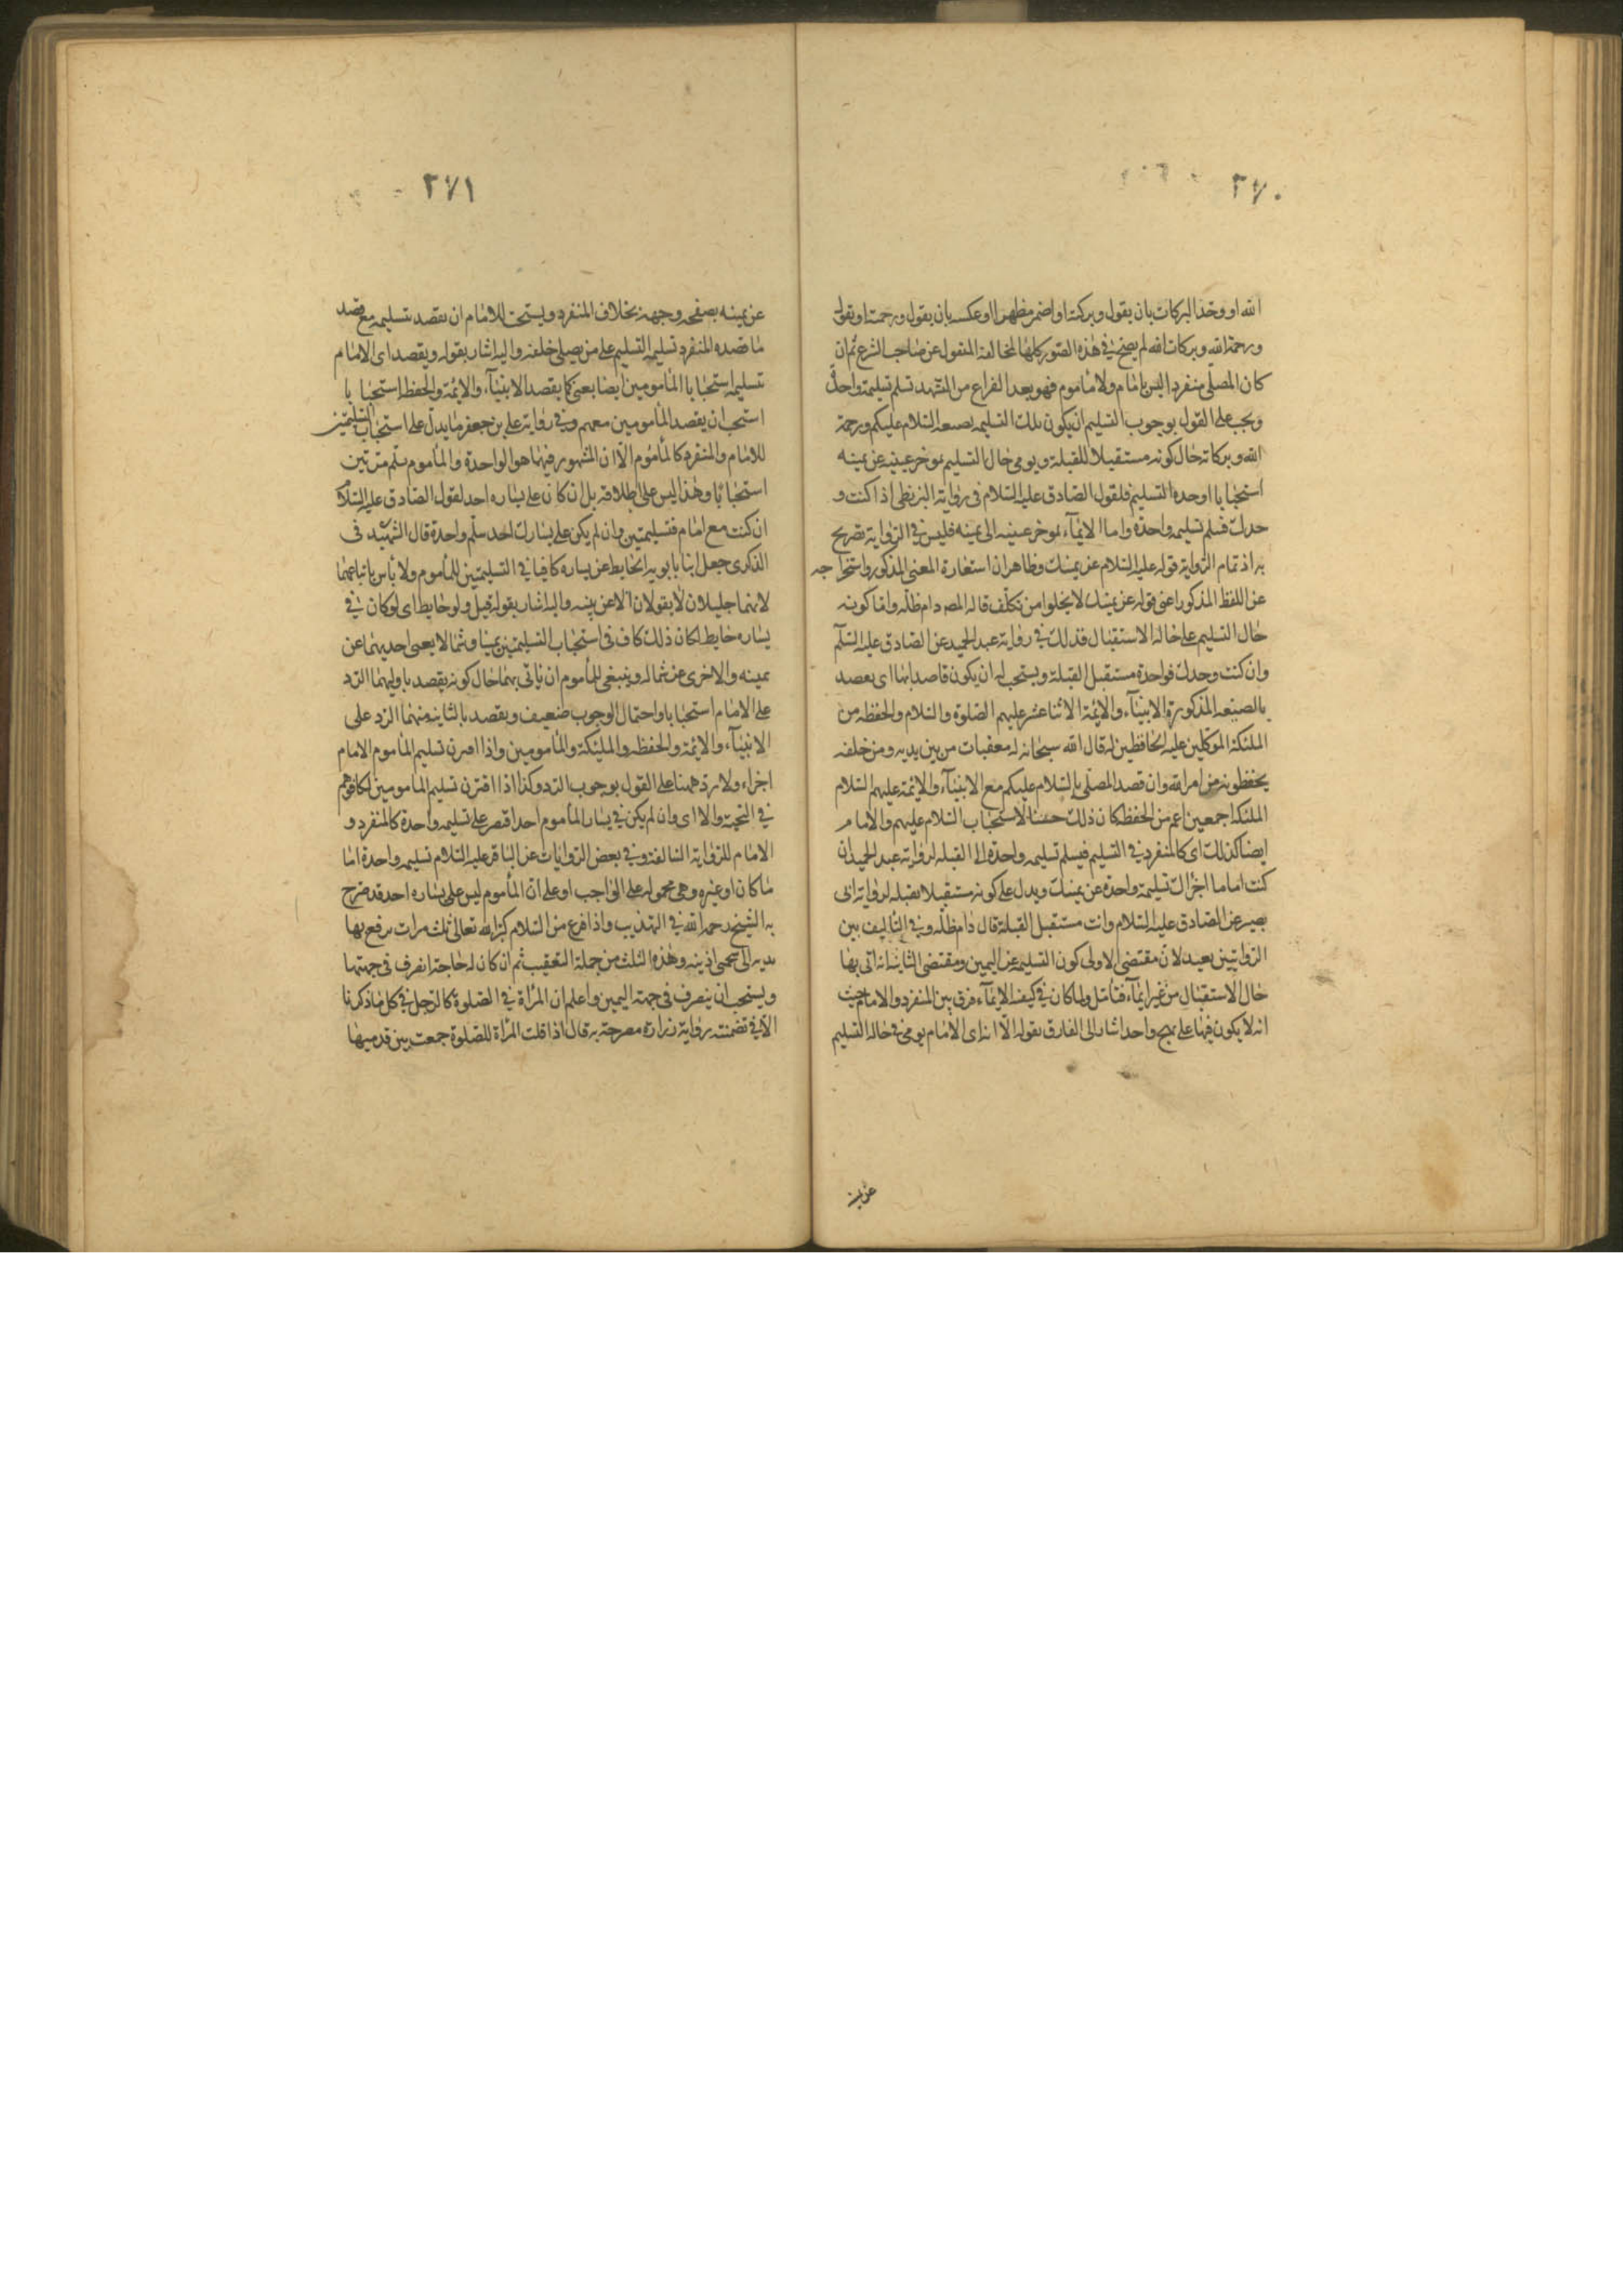 ٢٧٠
الله او وحد البركات بان يقول وبركته او اضمر مظهرا او عكسه بان يقول ورحمته او يقول
ورحمة الله وبركات الله لم يصح في هذه الصور كلها لمخالفة المنقول عن صاحب الشرع ثم ان
كان المصلي منفردا ليس بامام ولا مأموم فهو بعد الفراغ من التشهد تسلم تسليمة واحدة
ويجب على القول بوجوب التسليم ان يكون تلك التسليمه بصيغة السلام عليكم ورحمة
الله وبركاته حال كونه مستقبلا للقبلة ويومي حال التسليم بموخر عينيه عن يمينه
استحبابا اما وحدة التسليم فلقول الصادق عليه السلام في رواية البزنطي اذا كنت و
حدك فسلم تسليمه واحدة واما الايماء بموخر عينيه الى يمينه فليس في الرواية تصريح
به اذ تمام الرواية قوله عليه السلام عن يمينك وظاهر ان استفارة المعنى المذكور واستخراجه
عن اللفظ المذكور اعني قوله عن يمينك لا يخلوا من تكلف قاله المصـ دام ظله واما كونه
حال التسليم على حاله الاستقبال فذلك في رواية عبد الحميد عن الصادق عليه السلم
وان كنت وحدك فواحدة مستقبل القبلة ويستحب له ان يكون قاصدا بها اي يقصد
بالصيغه المذكورة الانبياء والائمة الاثنا عشر عليهم الصلوة والسلام والحفظه من
الملئكة الموكلين عليه الحافظين له قال الله سبحانه له معقبات من بين يديه ومن خلفه
يحفظونه من امر الله وان قصد المصلي بالسلام عليكم مع الانبياء والائمة عليهم السلام
الملئكة اجمعين اعم من الحفظه كان ذلك حسنا لاستحباب السلام عليهم والامام
ايضا كذلك اي كالمنفرد في التسليم فيسلم تسليمه واحدة الى القبله لرواية عبد الحميد ان
كنت اماما اجزأك تسليمة واحدة عن يمينك ويدل على كونه مستقبلا بقبله لرواية ابي
بصير عن الصادق عليه السلام وانت مستقبل القبلة قال دام ظله وفي التاليف بين
الروايتين بعيد لان مقتضى الاولى كون التسليمه عن اليمين ومقتضى الثانيه انه اتى بها
حال الاستقبال من غير ايماء فتأمل ولما كان في كيفية الايماء فرق بين المنفرد والامام حيث
انه لا يكون فيها على نهج واحد اشار الى الفارق بقوله الا انه اي الامام يومي في حاله التسليم
عن يمينه
٢٧١
عن يمينه بصفحة وجهه بخلاف المنفرد ويستحب للامام ان يقصد بتسليمه مع قصد
ما قصده المنفرد بتسليمه التسليم على من يصلي خلفه واليه اشار بقوله ويقصد اي الامام
بتسليمه استحبابا المأمومين ايضا يعني كما يقصد الانبياء والائمة والحفظه استحبابا
استحب ان يقصد المأمومين معهم وفي رواية علي بن جعفر ما يدل على استحباب التسليمتين
للامام والمنفرد كالمأموم الا ان المشهور فيهما هو الواحدة والمأموم يسلم مرتين
استحبابا وهذا ليس على اطلاقه بل ان كان على يساره احد لقول الصادق عليه السلام
ان كنت مع امام فتسليمتين وان لم يكن على يسارك احد سلم واحدة قال الشهيد في
الذكرى جعل ابنا بابويه الحايط عن يساره كافيا في التسليمتين للمأموم ولا بأس باتباعهما
لانهما جليلان لا يقولان الا عن بينه واليه اشار بقوله قيل ولو حايط اي لو كان في
يساره حايط لكان ذلك كاف في استحباب التسليمتين يمينا وشمالا يعني احديهما عن
يمينه والاخرى عن شماله وينبغي للمأموم ان يأتي بهما حال كونه يقصد باوليهما الرد
على الامام استحبابا واحتمال الوجوب ضعيف ويقصد بالثانيه منهما الرد على
الانبياء والائمة والحفظه والملئكة والمأمومين واذا اقترن تسليم المأموم الامام
اجزاء ولا رد ههنا على القول بوجوب الرد وكذا اذا اقترن تسليم المأمومين لتكافؤهم
في التحية والا اي وان لم يكن في يسار المأموم احد اقتصر على تسليمه واحدة كالمنفرد و
الامام للرواية السالفة وفي بعض الروايات عن الباقر عليه السلام تسليمه واحدة اماما
كان او غيره وهي محمولة على الواجب او على ان المأموم ليس على يساره احد قد صرح
به الشيخ رحمه الله في التهذيب واذا فرغ من السلام كبر الله تعالى ثلث مرات يرفع بها
يديه الى شحمتي اذنيه وهذه الثلث من جملة التعقيب ثم ان كان له حاجة انصرف في جهتها
ويستحب ان ينصرف في جهة اليمين واعلم ان المرأة في الصلوة كالرجل في كل ما ذكرنا
الا في تضمنته رواية زرارة مصرحة به قال اذا قامت المرأة للصلوة جمعت بين قدميها